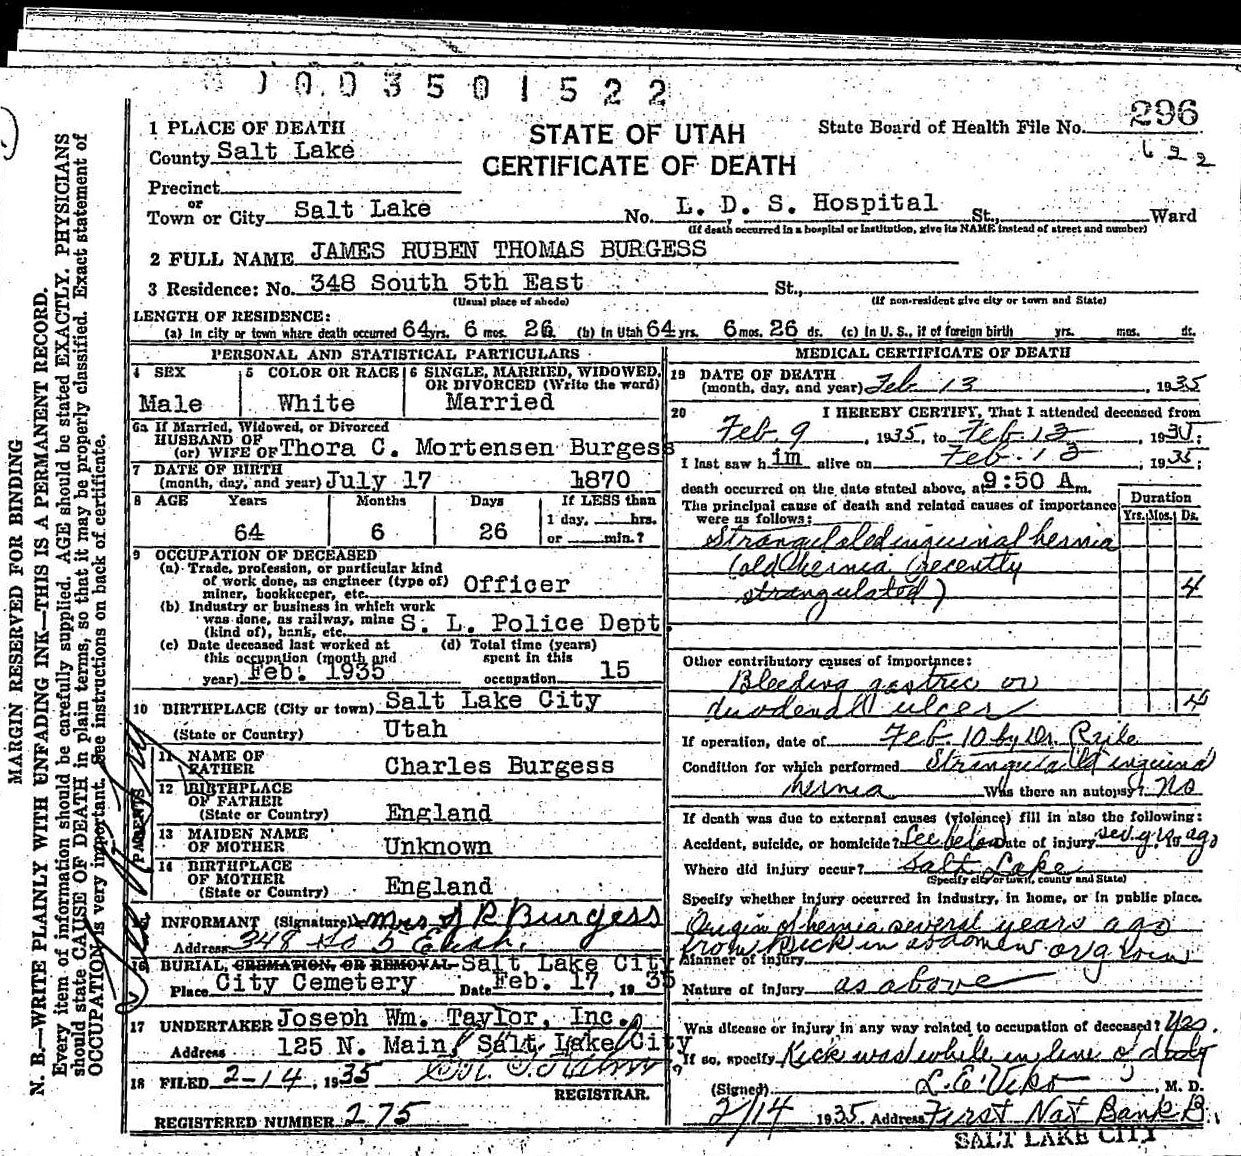 1003501522
STATE OF UTAH
CERTIFICATE OF DEATH
State Board of Health File No. 296
622
1 PLACE OF DEATH
County Salt Lake
Precinct
or
Town or City Salt Lake No. L. D. S. Hospital St., Ward
(If death occurred in a hospital or institution, give its NAME instead of street and number)
2 FULL NAME JAMES RUBEN THOMAS BURGESS
3 Residence: No. 348 South 5th East St.,
(Usual place of abode) (If non-resident give city or town and State)
LENGTH OF RESIDENCE:
(a) In city or town where death occurred 64 yrs. 6 mos. 26 (b) In Utah 64 yrs. 6 mos. 26 ds. (c) In U. S., if of foreign birth yrs. mos. ds.
PERSONAL AND STATISTICAL PARTICULARS
4 SEX
Male
5 COLOR OR RACE
White
6 SINGLE, MARRIED, WIDOWED, OR DIVORCED (Write the word)
Married
6a If Married, Widowed, or Divorced
HUSBAND OF
(or) WIFE OF Thora C. Mortensen Burgess
7 DATE OF BIRTH
(month, day, and year) July 17 1870
8 AGE Years Months Days If LESS than
1 day, hrs.
64 6 26 or min.?
9 OCCUPATION OF DECEASED
(a) Trade, profession, or particular kind
of work done, as engineer (type of)
miner, bookkeeper, etc. Officer
(b) Industry or business in which work
was done, as railway, mine
(kind of), bank, etc. S. L. Police Dept.
(c) Date deceased last worked at
this occupation (month and
year) Feb. 1935
(d) Total time (years)
spent in this
occupation 15
10 BIRTHPLACE (City or town) Salt Lake City
(State or Country) Utah
PARENTS
11 NAME OF
FATHER Charles Burgess
12 BIRTHPLACE
OF FATHER
(State or Country) England
13 MAIDEN NAME
OF MOTHER Unknown
14 BIRTHPLACE
OF MOTHER
(State or Country) England
15 INFORMANT (Signature) Mrs J R Burgess
Address 348 So 5 East.
16 BURIAL, CREMATION, OR REMOVAL Salt Lake City
Place City Cemetery Date Feb. 17, 1935
17 UNDERTAKER Joseph Wm. Taylor, Inc.
Address 125 N. Main, Salt Lake City
18 FILED 2-14, 1935
REGISTRAR.
REGISTERED NUMBER 275
MEDICAL CERTIFICATE OF DEATH
19 DATE OF DEATH
(month, day, and year) Feb 13, 1935
20 I HEREBY CERTIFY, That I attended deceased from
Feb. 9, 1935, to Feb. 13, 1935;
I last saw h im alive on Feb. 13, 1935;
death occurred on the date stated above, at 9:50 A m.
The principal cause of death and related causes of importance
were as follows:
Duration
Yrs. Mos. Ds.
Strangulated inguinal hernia
(old hernia recently
strangulated) 4
Other contributory causes of importance:
Bleeding gastric or
duodenal ulcer 4
If operation, date of Feb. 10 by Dr.
Condition for which performed Strangulated inguinal
hernia Was there an autopsy? No
If death was due to external causes (violence) fill in also the following:
Accident, suicide, or homicide? See below Date of injury sev. yrs ago, 19
Where did injury occur? Salt Lake
(Specify city or town, county and State)
Specify whether injury occurred in industry, in home, or in public place.
Origin of hernia several years ago
from kick in abdomen or groin
Manner of injury
Nature of injury as above
Was disease or injury in any way related to occupation of deceased? Yes.
If so, specify Kick was while in line of duty
(Signed) L. E. Viko, M. D.
2/14 1935 Address First Nat Bank B.
SALT LAKE CITY
MARGIN RESERVED FOR BINDING
N. B.—WRITE PLAINLY WITH UNFADING INK—THIS IS A PERMANENT RECORD.
Every item of information should be carefully supplied. AGE should be stated EXACTLY. PHYSICIANS
should state CAUSE OF DEATH in plain terms, so that it may be properly classified. Exact statement of
OCCUPATION is very important. See instructions on back of certificate.